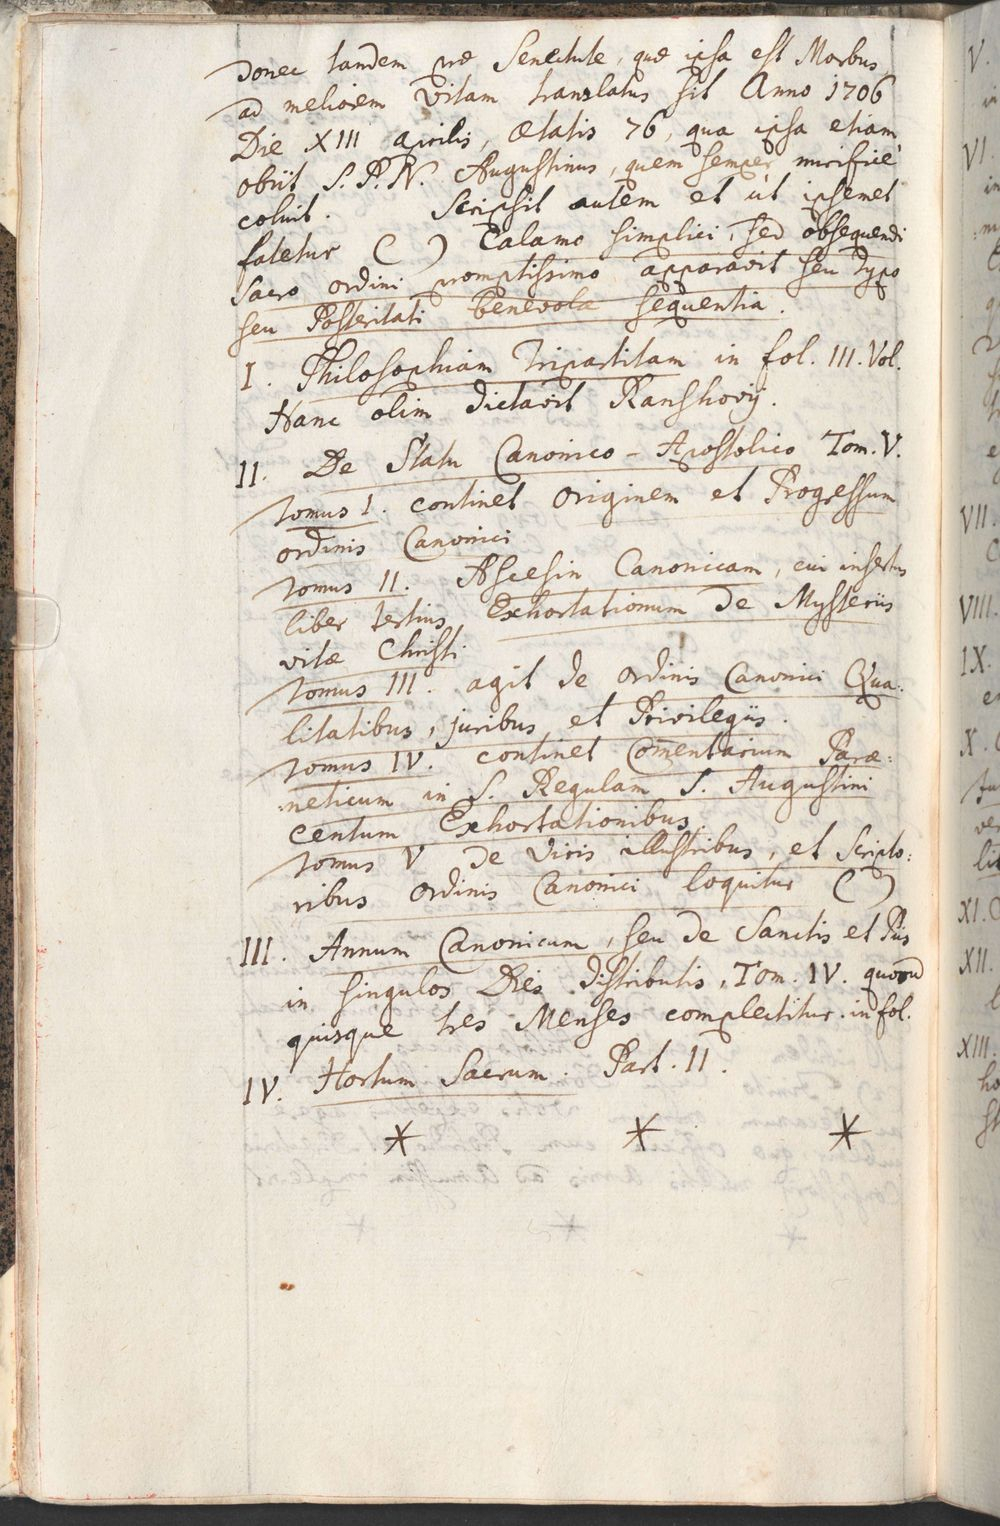 Donec tandem præ Senectute, quæ ipsa est Morbus
ad meliorem Vitam translatus sit Anno 1706
Die XIII aprilis, Ætatis 76, qua ipsa etiam
obiit S. P. N. Augustinus, quem semper mirificè
coluit. Scripsit autem et ut ipsemet
fatetur ( ) Calamo simplici, sed obsequendi
Sacro ordini promptissimo apparavit seu Typo
seu Posteritati benevolæ sequentia.
I. Philosophiam Tripartitam in fol. III. Vol.
Hanc olim dictavit Ranshovij.
II. De Statu Canonico - Apostolico Tom. V.
Tomus I. continet originem et Progessum
ordinis Canonici
Tomus II. Ascesin Canonicam, cui insertus
liber tertius Exhortationum de Mysteriis
vitæ Christi
Tomus III. agit de ordinis Canonici Qua:
litatibus, juribus, et Privilegiis.
Tomus IV. continet Comentarium Paræ:
neticum in S. Regulam S. Augustini
centum Exhortationibus.
Tomus V de Viris illustribus, et Scripto:
ribus ordinis Canonici loquitur ( )
III. Annum Canonicum, seu de Sanctis et Piis
in singulos Dies distributis, Tom. IV. quorũ
quisque tres Menses complectitur. in fol.
IV. Hortum Sacrum. Part. II.
* * *
V.
VI.
VII.
VIII.
IX.
X.
XI.
XII.
XIII.